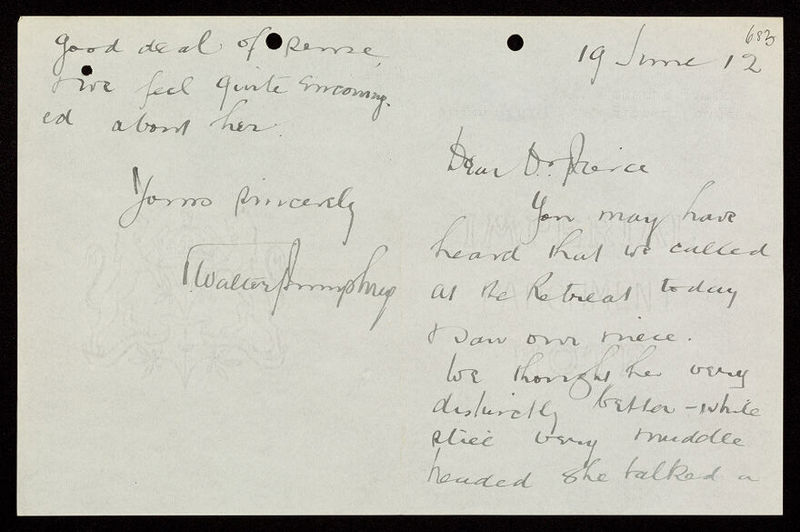 683
19 June 12
Dear Dr Pierce
You may have
heard that we called
at the Retreat today
& saw our niece.
We thought her very
distinctly better - while
still very muddle
headed she talked a
good deal of sense,
& we feel quite encourag-
ed about her.
Yours sincerely
Walter